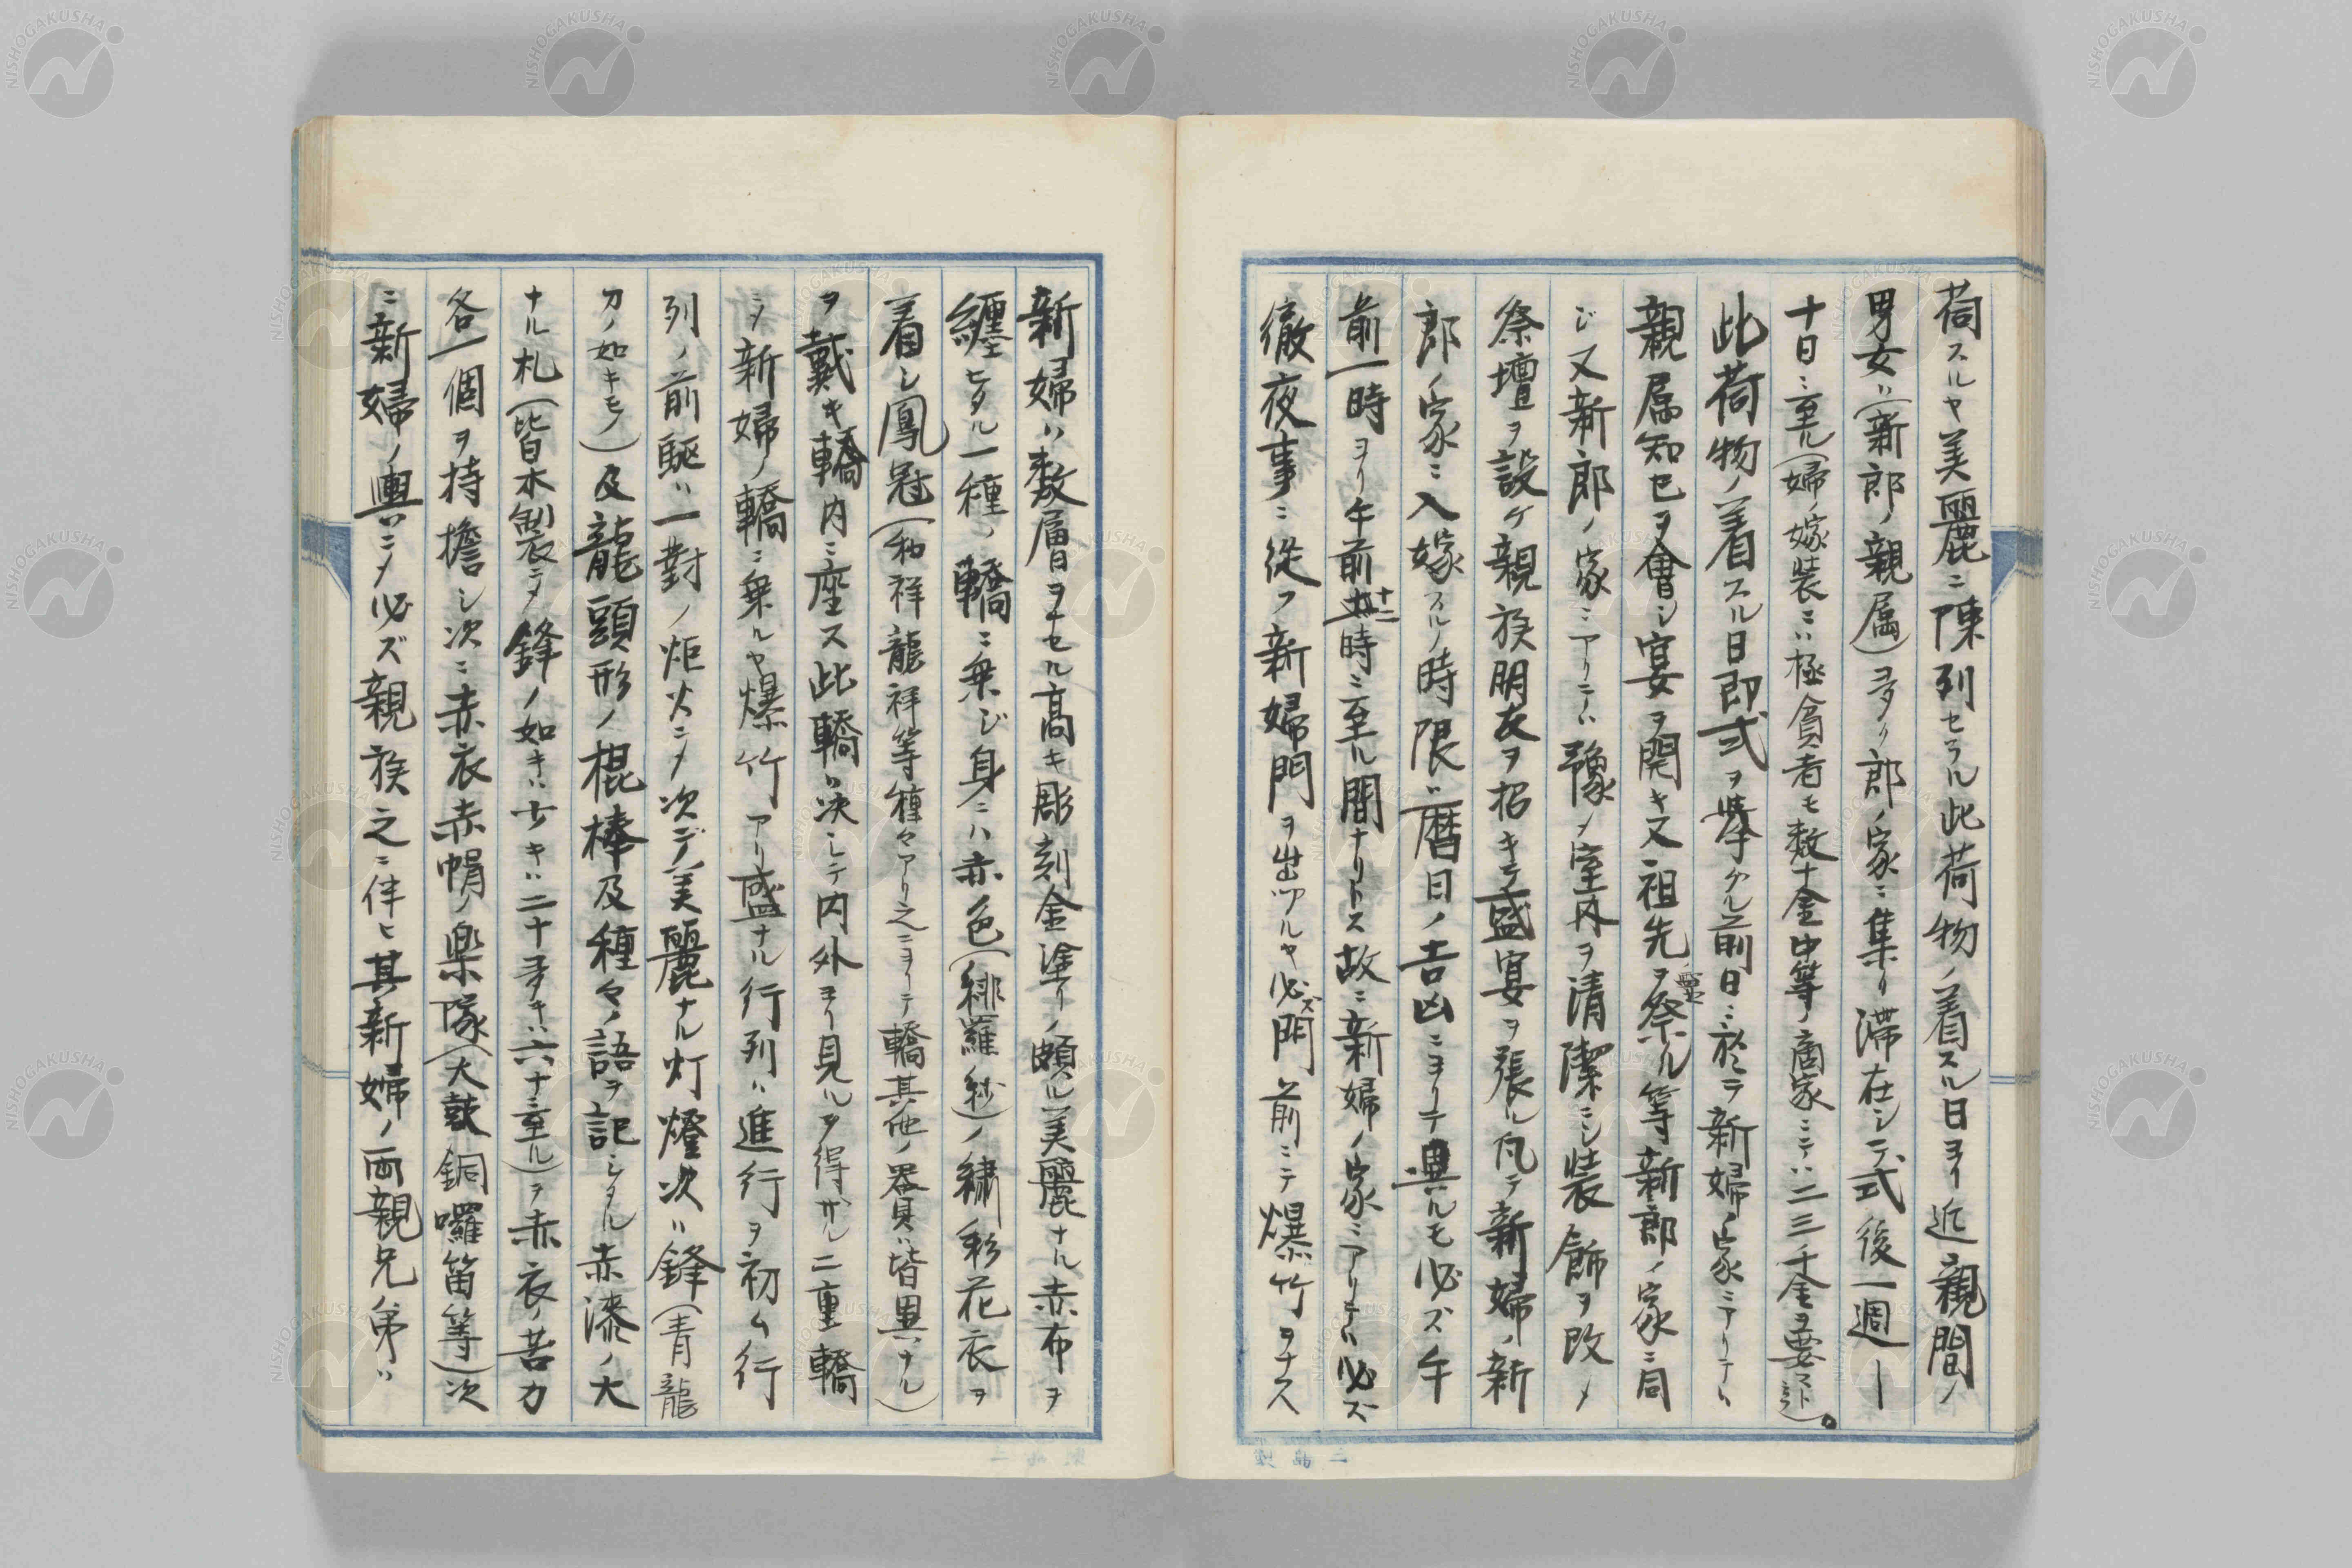 荷スルヤ美麗ニ陳列セラル此荷物ノ着スル日ヨリ近親間ノ
男女ハ(新郎ノ親属)多ク郎ノ家ニ集リ滞在シテ式後一週一
十日ニ至ル(婦ノ嫁装ニハ極貧者モ数十金中等ノ商家ニテハ二三千金ヲ要スト云)。
此荷物ノ着スル日即式ヲ挙クル前日ニ於テ新婦ノ家ニアリテハ
親属知己ヲ會シ宴ヲ開キ又祖先ノ霊ヲ祭ル等新郎ノ家ニ同
ジ又新郎ノ家ニアリテハ豫メ室内ヲ清潔ニシ装飾ヲ改メ
祭壇ヲ設ケ親族朋友ヲ招キテ盛宴ヲ張ル凡テ新婦ノ新
郎ノ家ニ入嫁スルノ時限ハ暦日ノ吉凶ニヨリテ異ルモ必ズ午
前一時ヨリ午前十二時ニ至ル間ナリトス故ニ新婦ノ家ニアリテハ必ズ
徹夜事ニ従フ新婦門ヲ出ヅルヤ必ズ門前ニテ爆竹ヲナス
新婦ハ数層ヲナセル高キ彫刻金塗リノ頗ル美麗ナル赤布ヲ
纏ヒタル一種ノ轎ニ乗ジ身ニハ赤色(緋羅紗)ノ繍彩花衣ヲ
着シ鳳冠(和祥龍祥等種々アリ之ニヨリテ轎其他ノ器具ハ皆異ナル)
ヲ戴キ轎内ニ座ス此轎ハ决シテ内外ヨリ見ルヲ得ザル二重轎
ニメ新婦ノ轎ニ乗ルヤ爆竹アリ盛ナル行列ハ進行ヲ初ム行
列ノ前駆ハ一對ノ炬火ニメ次デ美麗ナル灯燈次ハ鋒(青龍
刀ノ如キモノ)及龍頭形ノ棍棒及種々ノ語ヲ記シタル赤漆ノ大
ナル札(皆木製ニメ鋒ノ如キハ少キハ二十多キハ六十ニ至ル)ヲ赤衣ノ苦力
各一個ヲ持擔シ次ニ赤衣赤帽ノ楽隊(大鼓銅囉笛等)次
ニ新婦ノ輿ハニメ必ズ親族之ニ伴ヒ其新婦ノ両親兄弟ハ